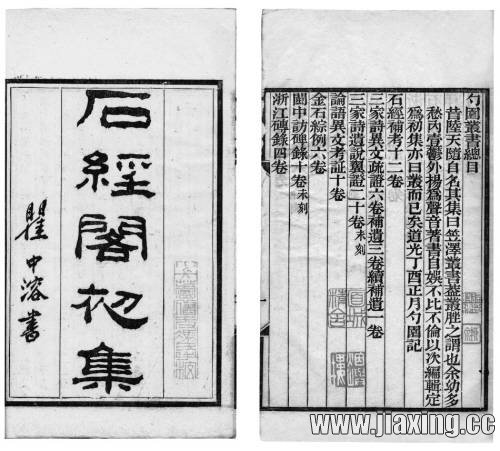 石經閣初集
瞿中溶書
勺園叢書總目
昔陸天隨自名其集曰笠澤叢書叢叢脞之謂也余幼多
愁內壹鬱外揚爲聲音著書自娛不比不倫以次編輯定
爲初集亦曰叢而已矣道光丁酉正月勺園記
石經補考十二卷
三家詩異文疏證六卷補遺三卷續補遺一卷
三家詩遺說翼證二十卷未刻
論語異文考証十卷
金石綜例六卷
閩中訪碑錄十卷未刻
浙江磚錄四卷
www.jiaxing.cc